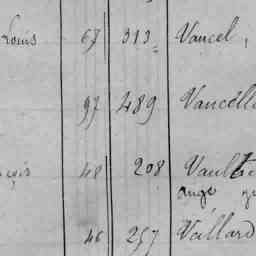 Louis 67 313 Vancel,
97 489 Vancell
48 208 Vault
ange
46 257 Vaillard